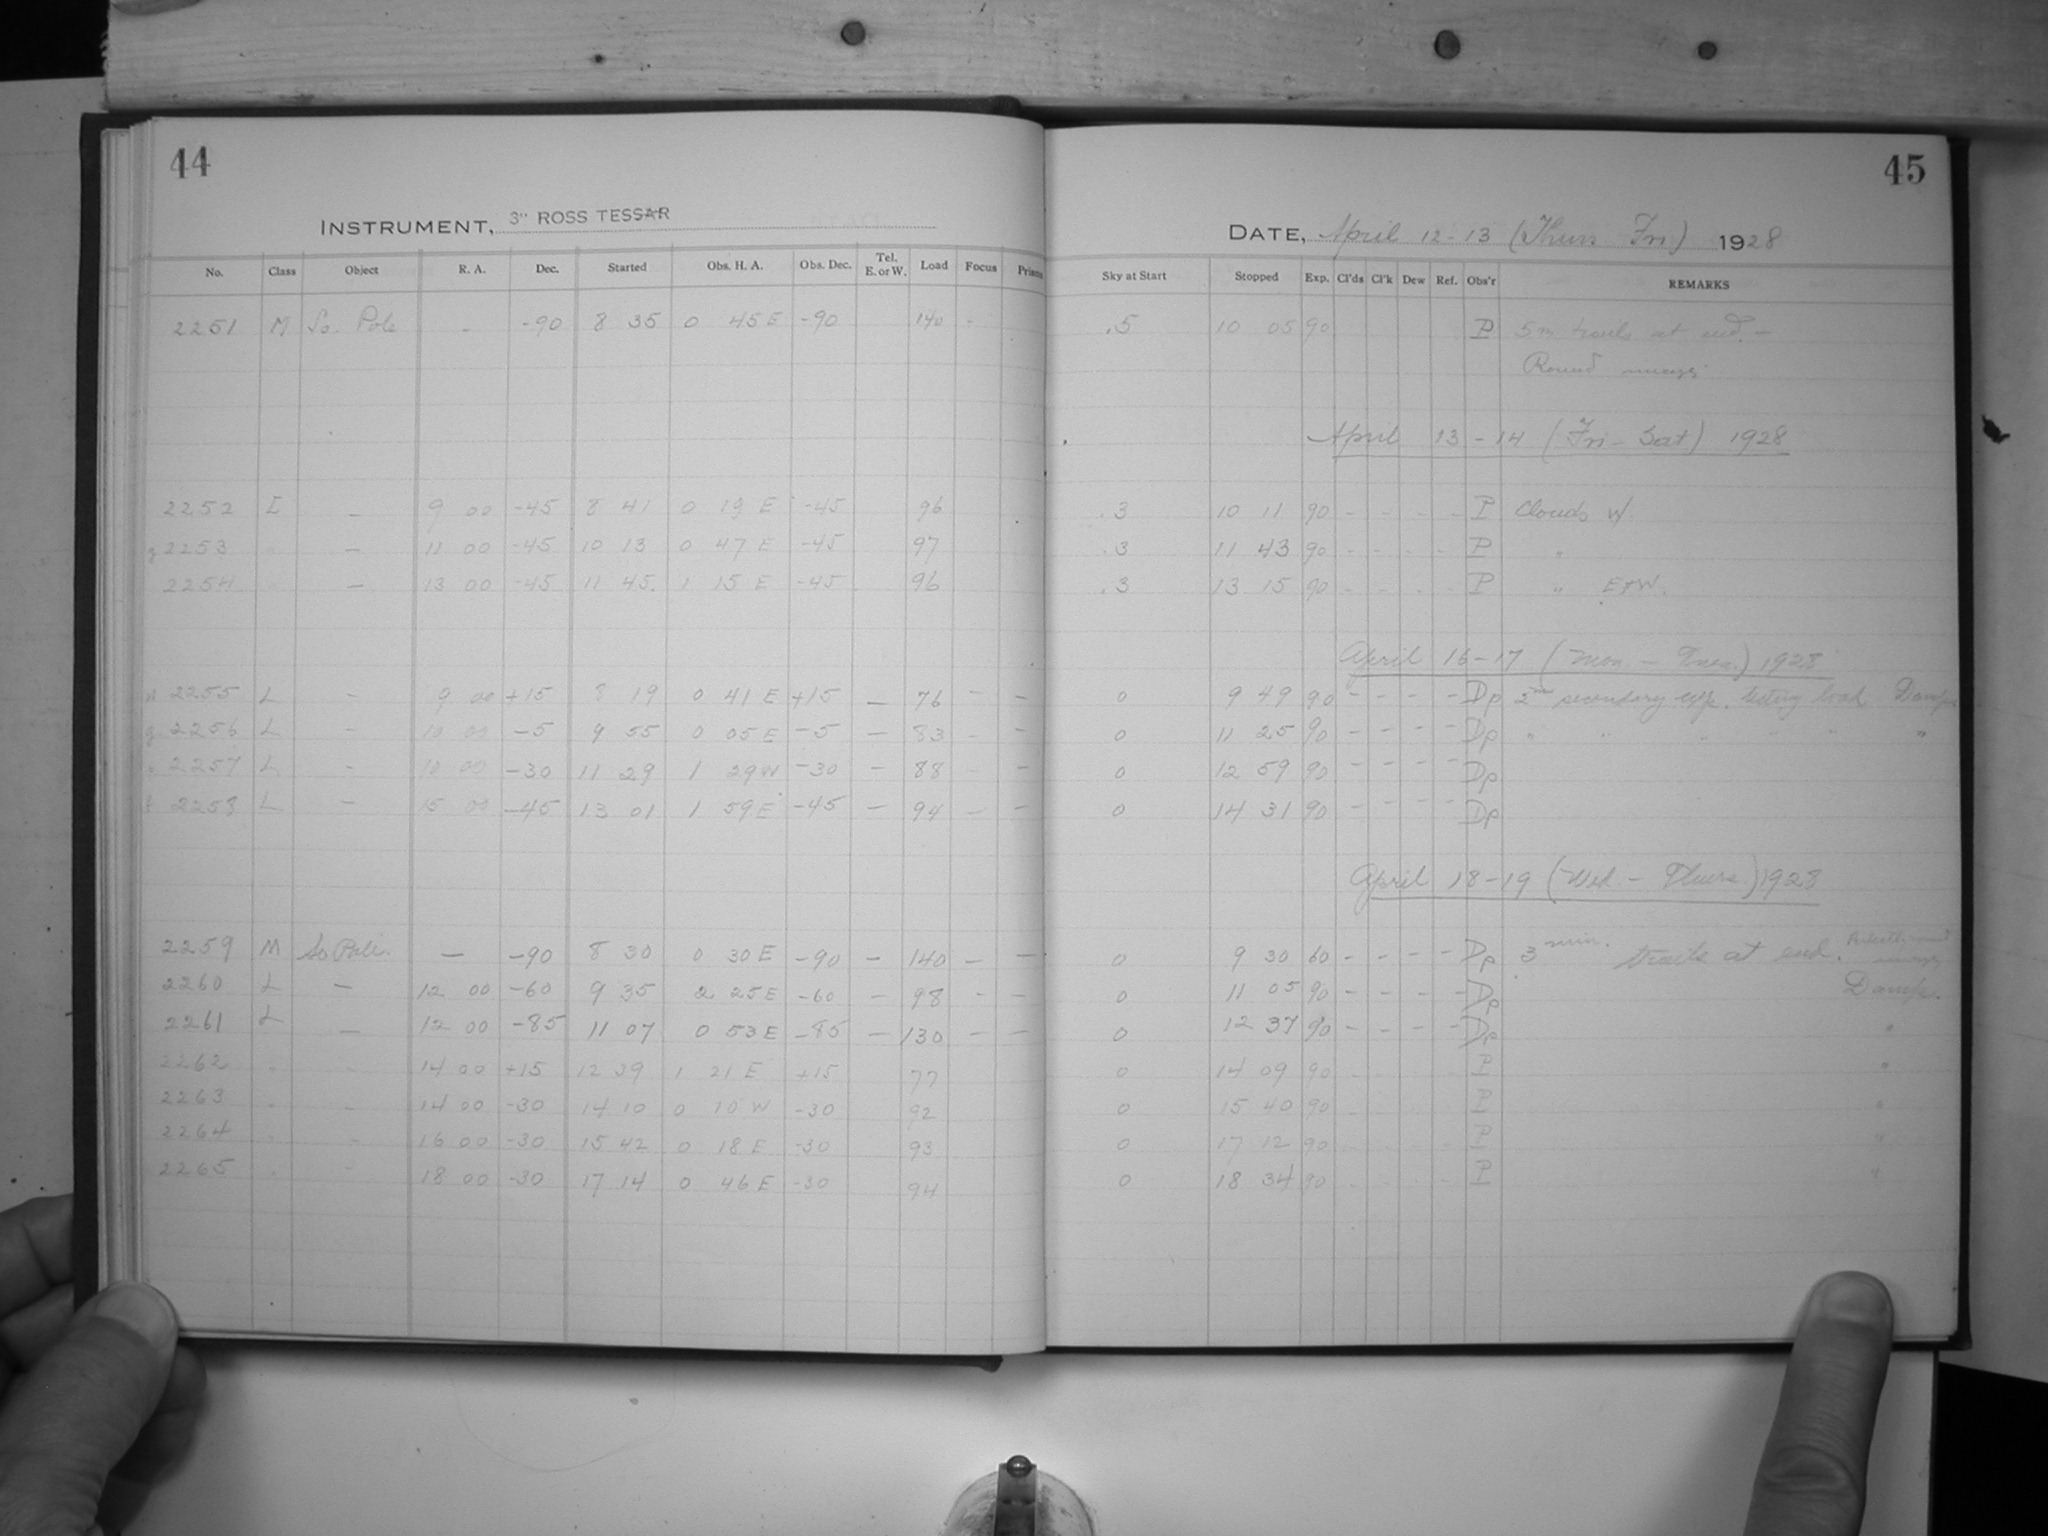 44
INSTRUMENT, 3" ROSS TESSAR
No. Class Object R. A. Dec. Started Obs. H. A. Obs. Dec. Tel. E. or W. Load Focus Prism
2251 M So. Pole - -90 8 35 0 45 E -90 140 -
2252 L - 9 00 -45 8 41 0 19 E -45 96
2253 - 11 00 -45 10 13 0 47 E -45 97
2254 - 13 00 -45 11 45 1 15 E -45 96
2255 L - 9 00 +15 8 19 0 41 E +15 - 76 - -
2256 L - 10 00 -5 9 55 0 05 E -5 - 83 - -
2257 L - 10 00 -30 11 29 1 29 W -30 - 88 - -
2258 L - 15 00 -45 13 01 1 59 E -45 - 94 - -
2259 M So Pole. - -90 8 30 0 30 E -90 - 140 - -
2260 L - 12 00 -60 9 35 2 25 E -60 - 98 - -
2261 L - 12 00 -85 11 07 0 53 E -85 - 130 - -
2262 " - 14 00 +15 12 39 1 21 E +15 77
2263 " - 14 00 -30 14 10 0 10 W -30 92
2264 " - 16 00 -30 15 42 0 18 E -30 93
2265 " - 18 00 -30 17 14 0 46 E -30 94
45
DATE, April 12-13 (Thurs Fri) 1928
Sky at Start Stopped Exp. Cl'ds Cl'k Dew Ref. Obs'r REMARKS
.5 10 05 90 P 5m trails at end. -
Round images
April 13-14 (Fri-Sat) 1928
.3 10 11 90 - - - - P Clouds W.
.3 11 43 90 - - - - P "
.3 13 15 90 - - - - P " E+W.
April 16-17 (Mon-Tues.) 1928
0 9 49 90 - - - - Dp 2m secondary exp. load Damp
0 11 25 90 - - - - Dp " " " " " "
0 12 59 90 - - - - Dp
0 14 31 90 - - - - Dp
April 18-19 (Wed-Thurs.) 1928
0 9 30 60 - - - - Dp 3 min. trails at end. Perfectly round images
0 11 05 90 - - - - Dp Damp.
0 12 37 90 - - - - Dp "
0 14 09 90 - - - - P "
0 15 40 90 - - - - P "
0 17 12 90 - - - - P "
0 18 34 90 - - - - P "